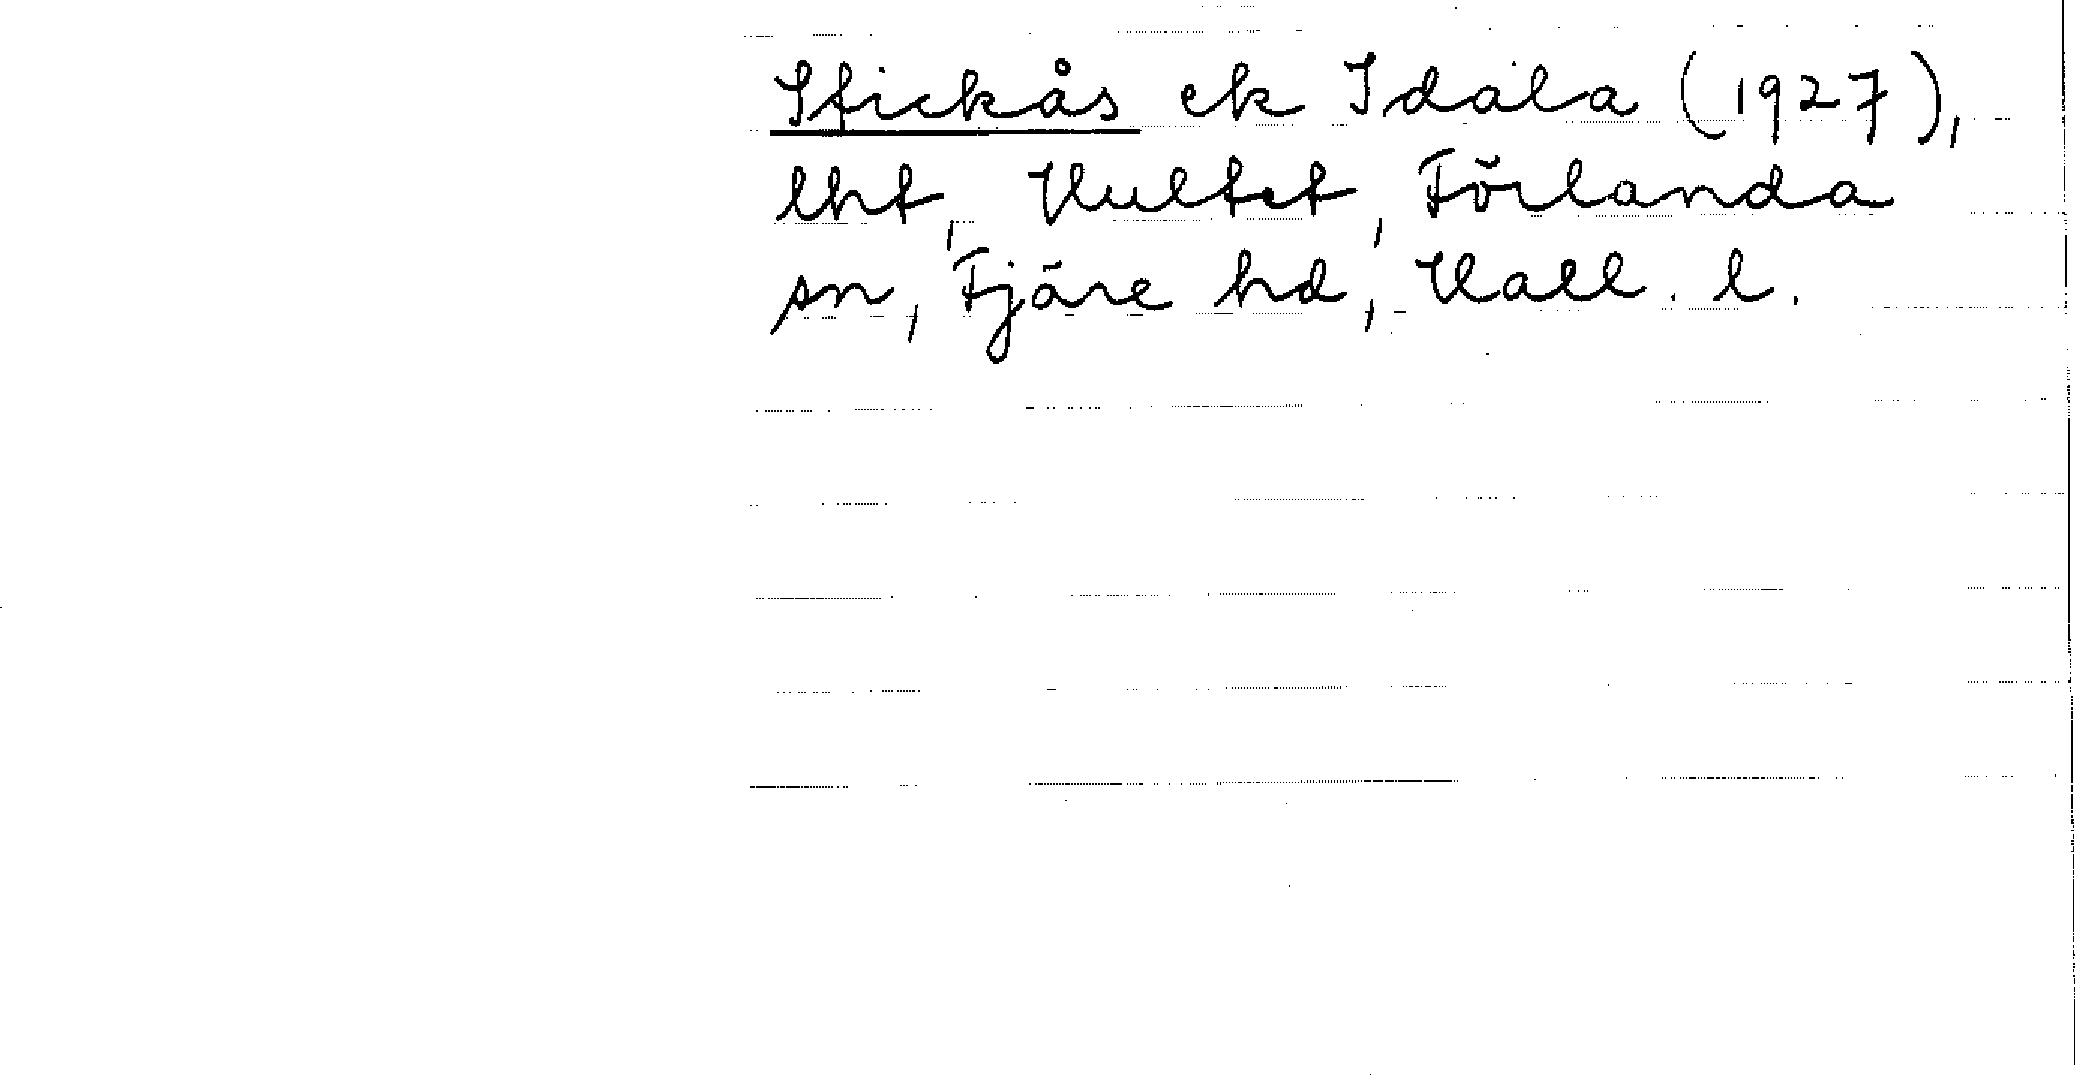 Stickås ek Idala (1927),
lht, Hultet, Förlanda
sn, Fjäre hd, Hall. l.